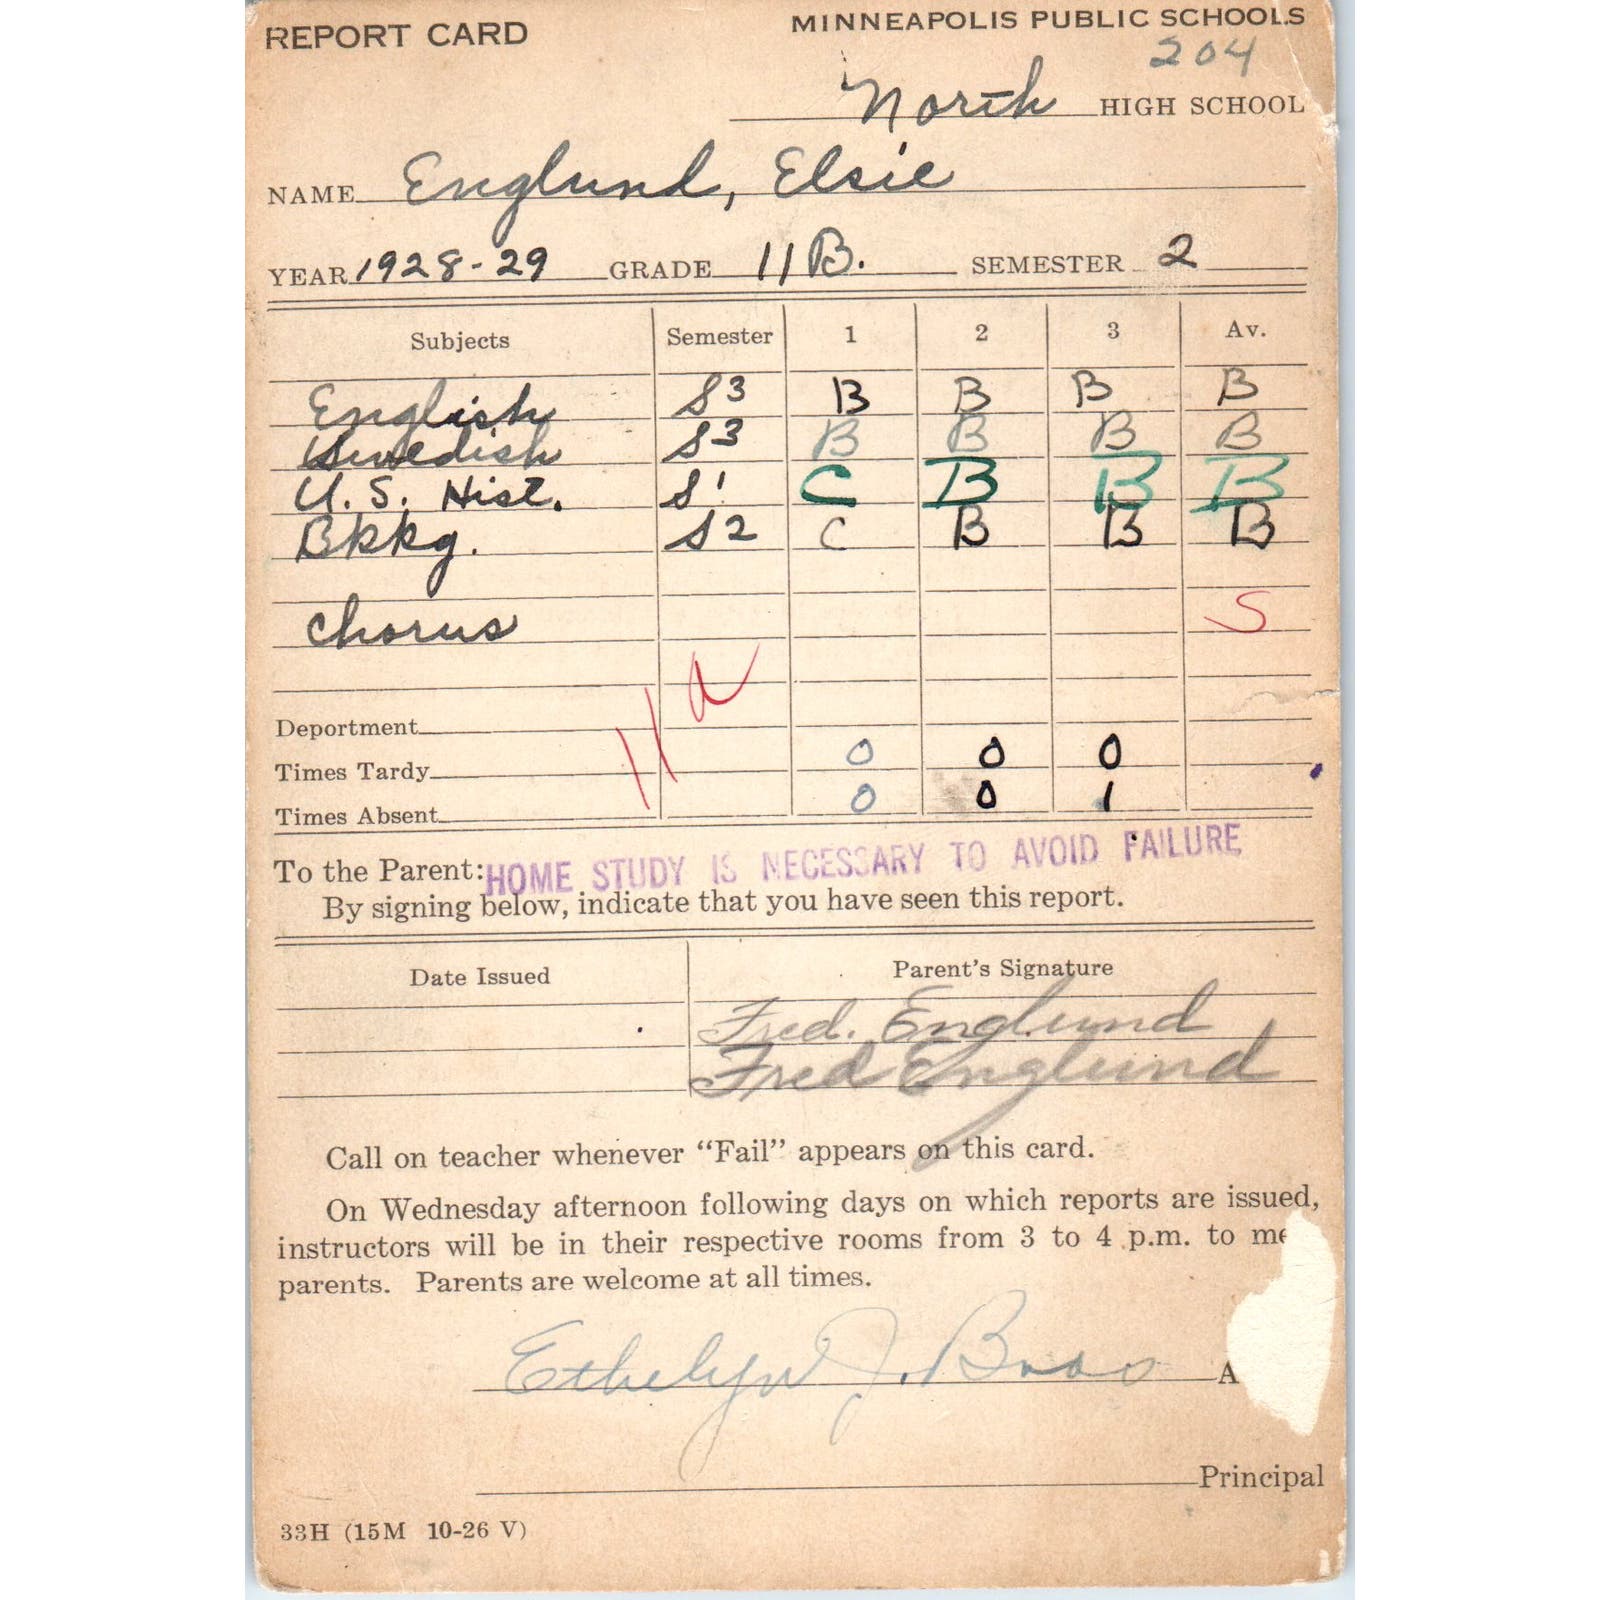 REPORT CARD
MINNEAPOLIS PUBLIC SCHOOLS
204
North HIGH SCHOOL
NAME Englund, Elsie
YEAR 1928-29 GRADE 11B. SEMESTER 2
Subjects Semester 1 2 3 Av.
English S3 B B B B
Swedish S3 B B B B
U.S. Hist. S1 C B B B
Bkkg. S2 C B B B
Chorus S
11a
Deportment
Times Tardy 0 0 0
Times Absent 0 0 1
To the Parent: HOME STUDY IS NECESSARY TO AVOID FAILURE
By signing below, indicate that you have seen this report.
Date Issued Parent's Signature
Fred. Englund
Fred Englund
Call on teacher whenever "Fail" appears on this card.
On Wednesday afternoon following days on which reports are issued,
instructors will be in their respective rooms from 3 to 4 p.m. to me
parents. Parents are welcome at all times.
Ethelyn J. A
Principal
33H (15M 10-26 V)